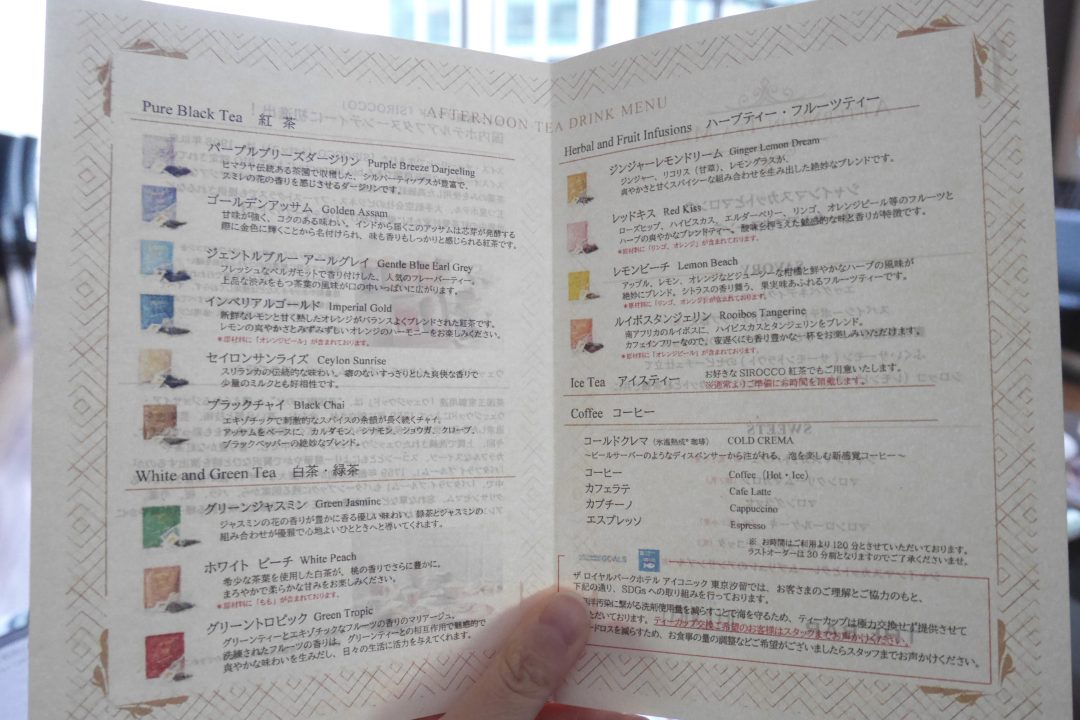 AFTERNOON TEA DRINK MENU
Pure Black Tea 紅 茶
パープルブリーズダージリン Purple Breeze Darjeeling
ヒマラヤ伝統ある茶園で収穫した、シルバーティップスが豊富で、
スミレの花の香りを感じさせるダージリンです。
ゴールデンアッサム Golden Assam
甘味が強く、コクのある味わい。インドから届くこのアッサムは芯芽が発酵する
際に金色に輝くことから名付けられ、味も香りもしっかりと感じられる紅茶です。
ジェントルブルー アールグレイ Gentle Blue Earl Grey
フレッシュなベルガモットで香り付けした、人気のフレーバーティー。
上品な渋みをもつ茶葉の風味が口の中いっぱいに広がります。
インペリアルゴールド Imperial Gold
新鮮なレモンと甘く熟したオレンジがバランスよくブレンドされた紅茶です。
レモンの爽やかさとみずみずしいオレンジのハーモニーをお楽しみください。
※原材料に「オレンジピール」が含まれております。
セイロンサンライズ Ceylon Sunrise
スリランカの伝統的な味わい。癖のないすっきりとした爽快な香りで
少量のミルクとも好相性です。
ブラックチャイ Black Chai
エキゾチックで刺激的なスパイスの余韻が長く続くチャイ。
アッサムをベースに、カルダモン、シナモン、ジョウガ、クローブ、
ブラックペッパーの絶妙なブレンド。
White and Green Tea 白茶・緑茶
グリーンジャスミン Green Jasmine
ジャスミンの花の香りが豊かに香る優しい味わい。緑茶とジャスミンの
組み合わせが優雅で心地よいひとときへと導いてくれます。
ホワイト ピーチ White Peach
希少な茶葉を使用した白茶が、桃の香りでさらに豊かに。
まろやかで柔らかな甘みをお楽しみください。
※原材料に「もも」が含まれております。
グリーントロピック Green Tropic
グリーンティーとエキゾチックなフルーツの香りのマリアージュ。
洗練されたフルーツの香りは、グリーンティーとの相互作用で魅惑的で
爽やかな味わいを生みだし、日々の生活に活力を与えてくれます。
Herbal and Fruit Infusions ハーブティー・フルーツティー
ジンジャーレモンドリーム Ginger Lemon Dream
ジンジャー、リコリス(甘草)、レモングラスが、
爽やかさと甘くスパイシーな組み合わせを生み出した絶妙なブレンドです。
レッドキス Red Kiss
ローズヒップ、ハイビスカス、エルダーベリー、リンゴ、オレンジピール等のフルーツと
ハーブの爽やかなブレンドティー。酸味を抑えた魅惑的な味と香りが特徴です。
※原材料に「リンゴ、オレンジ」が含まれております。
レモンビーチ Lemon Beach
アップル、レモン、オレンジなどジューシーな柑橘と鮮やかなハーブの風味が
絶妙にブレンド。シトラスの香り舞う、果実味あふれるフルーツティーです。
※原材料に「リンゴ、オレンジ」が含まれております。
ルイボスタンジェリン Rooibos Tangerine
南アフリカのルイボスに、ハイビスカスとタンジェリンをブレンド。
カフェインフリーなので、夜遅くにも香り豊かな一杯をお楽しみいただけます。
※原材料に「オレンジピール」が含まれております。
Ice Tea アイスティー お好きな SIROCCO 紅茶でもご用意いたします。
※通常よりご準備にお時間を頂戴します。
Coffee コーヒー
コールドクレマ (氷温熟成® 珈琲) COLD CREMA
～ビールサーバーのようなディスペンサーから注がれる、泡を楽しむ新感覚コーヒー～
コーヒー Coffee (Hot・Ice)
カフェラテ Cafe Latte
カプチーノ Cappuccino
エスプレッソ Espresso
※ お時間はご利用より 120 分とさせていただいております。
ラストオーダーは 30 分前となりますのでご了承くださいませ。
ザ ロイヤルパークホテル アイコニック 東京汐留では、お客さまのご理解とご協力のもと、
下記の通り、SDGs への取り組みを行っております。
洋汚染に繋がる洗剤使用量を減らすことで海を守るため、ティーカップは極力交換せず提供させて
ただいております。ティーカップ交換ご希望のお客様はスタッフまでお声かけください。
ードロスを減らすため、お食事の量の調整などご希望がございましたらスタッフまでお声かけください。